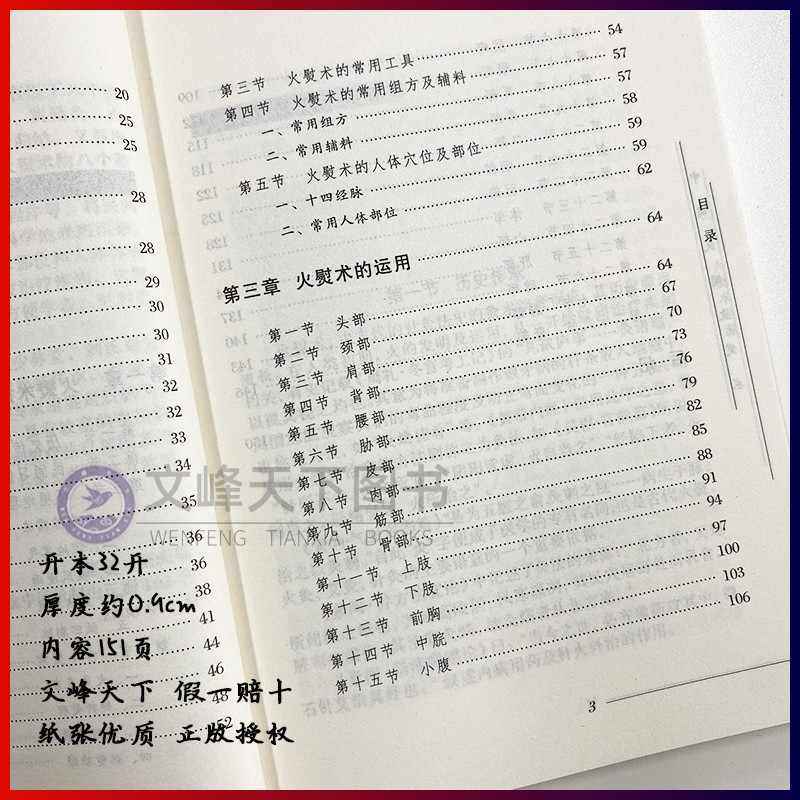 20
25
25
28
28
29
30
30
31
32
32
33
34
35
36
36
38
41
44
46
48
52
第三节 火熨术的常用工具 54
第四节 火熨术的常用组方及辅料 57
一、常用组方 57
二、常用辅料 58
第五节 火熨术的人体穴位及部位 59
一、十四经脉 59
二、常用人体部位 62
第三章 火熨术的运用 64
第一节 头部 64
第二节 颈部 67
第三节 肩部 70
第四节 背部 73
第五节 腰部 76
第六节 胁部 79
第七节 皮部 82
第八节 肉部 85
第九节 筋部 88
第十节 骨部 91
第十一节 上肢 94
第十二节 下肢 97
第十三节 前胸 100
第十四节 中脘 103
第十五节 小腹 106
目录
3
文峰天下图书
WENFENG TIANXIA BOOKS
开本32开
厚度约0.9cm
内容151页
文峰天下 假一赔十
纸张优质 正版授权